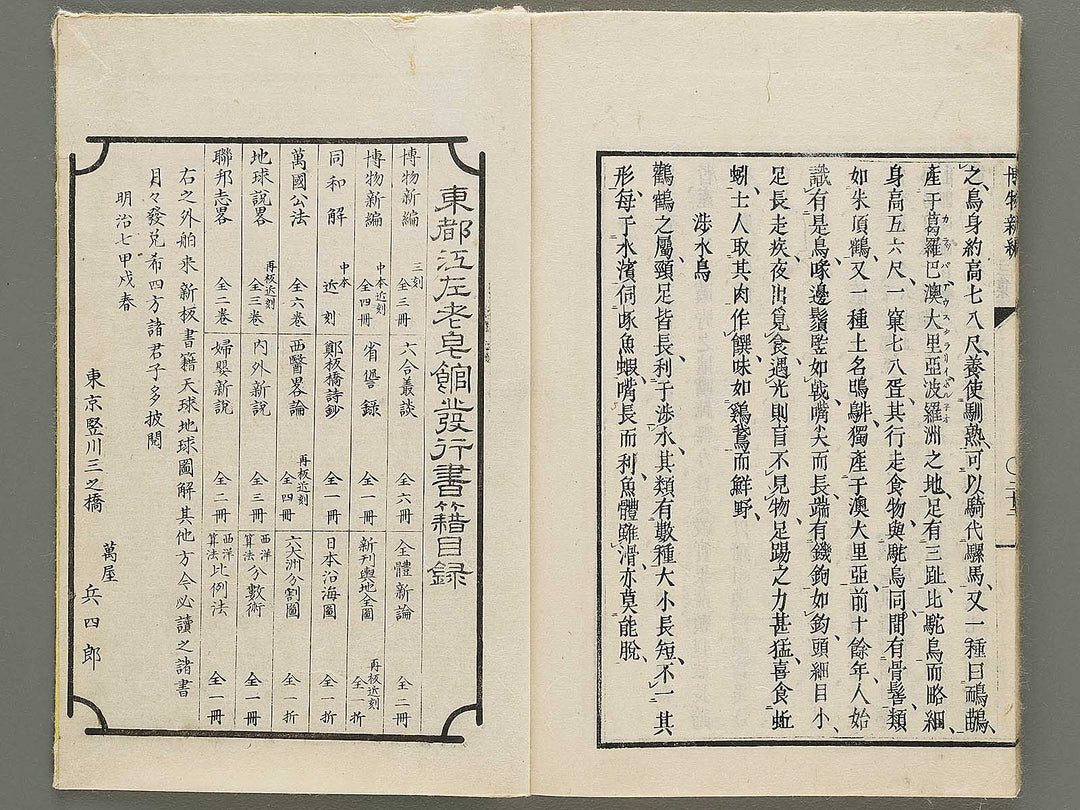 博物新編
之鳥身約高七八尺養使馴熟可以騎代驟馬又一種曰鴯鶓
產于葛羅巴澳大里亞波羅洲之地足有三趾比駝鳥而略細
カラッパ アウスタラリイ ボルネオ
身高五六尺一窠七八蛋其行走食物與駝鳥同間有骨髻類
如朱頂鶴又一種土名鳴鶓獨產于澳大里亞前十餘年人始
識有是鳥喙邊鬚豎如戟嘴尖而長端有鐖鉤如鈎頭細目小
足長走疾夜出覓食遇光則盲不見物足踢之力甚猛喜食蚯
蚓土人取其肉作饌味如鷄鵞而鮮野
涉水鳥
鸛鶴之屬頸足皆長利于涉水其類有數種大小長短不一其
形每于水濱伺啄魚蝦嘴長而利魚體雖滑亦莫能脫
東都江左老皂館發行書籍目錄
博物新編 三刻 全三冊 六合叢談 全六冊 全體新論 全二冊
博物新編 中本近刻 全四冊 省諐錄 全一冊 新刊輿地全圖 再板近刻 全一折
同和解 中本 近刻 鄭板橋詩鈔 全一冊 日本沿海圖 全一折
萬國公法 全六卷 西醫畧論 再板近刻 全四冊 六大洲分割圖 全一折
地球說畧 再板近刻 全三卷 內外新說 全三冊 西洋算法分數術 全一冊
聯邦志畧 全二卷 婦嬰新說 全二冊 西洋算法比例法 全一冊
右之外舶来新板書籍天球地球圖解其他方今必讀之諸書
月々發兌希四方諸君子多披閱
明治七甲戌春
東京竪川三之橋
萬屋 兵四郎